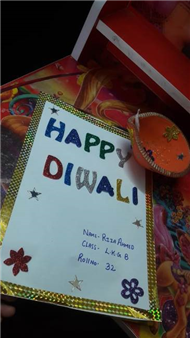 HAPPY
DIWALI
Name - Riza Ahmed
Class - L.K.G B
Roll no - 32